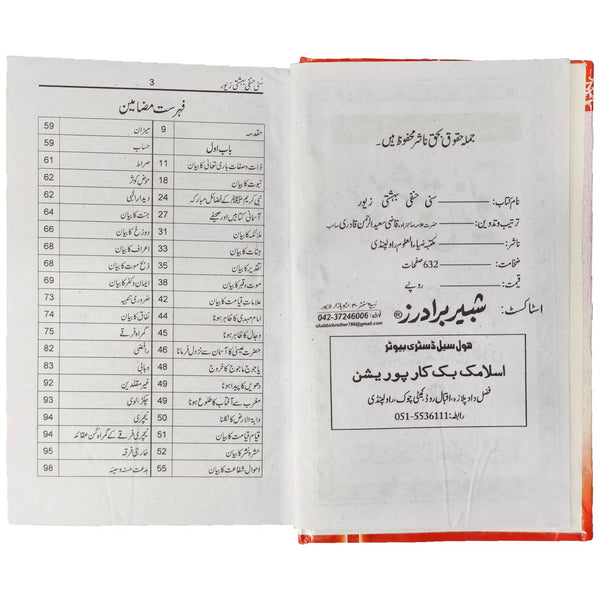 جملہ حقوق بحق ناشر محفوظ ہیں۔
نام کتاب: سنی حنفی بہشتی زیور
ترتیب و تدوین: قاضی سعید الرحمٰن قادری صاحب
ناشر: مکتبہ ضیاء العلوم راولپنڈی
ضخامت: 632 صفحات
قیمت: روپے
اسٹاکسٹ: شبیر برادرز®
زبیدہ سنٹر ۴۰ اردو بازار لاہور
فون: 042-37246006
shabbirbrother786@gmail.com
ہول سیل ڈسٹری بیوٹر
اسلامک بک کارپوریشن
فضل داد پلازہ، اقبال روڈ کمیٹی چوک، راولپنڈی
رابطہ: 051-5536111
سنی حنفی بہشتی زیور 3
فہرست مضامین
مقدمہ 9 میزان 59
باب اول حساب 59
ذات و صفات باری تعالیٰ کا بیان 11 صراط 61
نبوت کا بیان 18 حوض کوثر 62
نبی کریم ﷺ کے فضائل مبارکہ 24 دیدار الٰہی 62
آسمانی کتابیں اور صحیفے 27 جنت کا بیان 64
ملائکہ کا بیان 31 دوزخ کا بیان 66
جنات کا بیان 33 اعراف کا بیان 68
تقدیر کا بیان 35 ذبح موت کا بیان 68
موت و قبر کا بیان 38 ایمان و کفر کا بیان 69
علامات قیامت کا بیان 42 ضروری تنبیہ 73
امام مہدی کا ظاہر ہونا 44 نفاق کا بیان 74
دجال کا ظاہر ہونا 45 گمراہ فرقے 75
حضرت عیسیٰ کا آسمان سے نزول فرمانا 46 رافضی 82
یاجوج ماجوج کا خروج 48 وہابی 82
دھویں کا پیدا ہونا 49 غیر مقلدین 92
مغرب سے آفتاب کا طلوع ہونا 49 چکڑالوی 93
دابۃ الارض کا نکلنا 50 نیچری 94
قیام قیامت کا بیان 51 نیچری فرقے کے گمراہ کن عقائد 94
حشر و نشر کا بیان 52 خارجی فرقہ 95
احوال شفاعت کا بیان 55 بدعت حسنہ و سیئہ 98